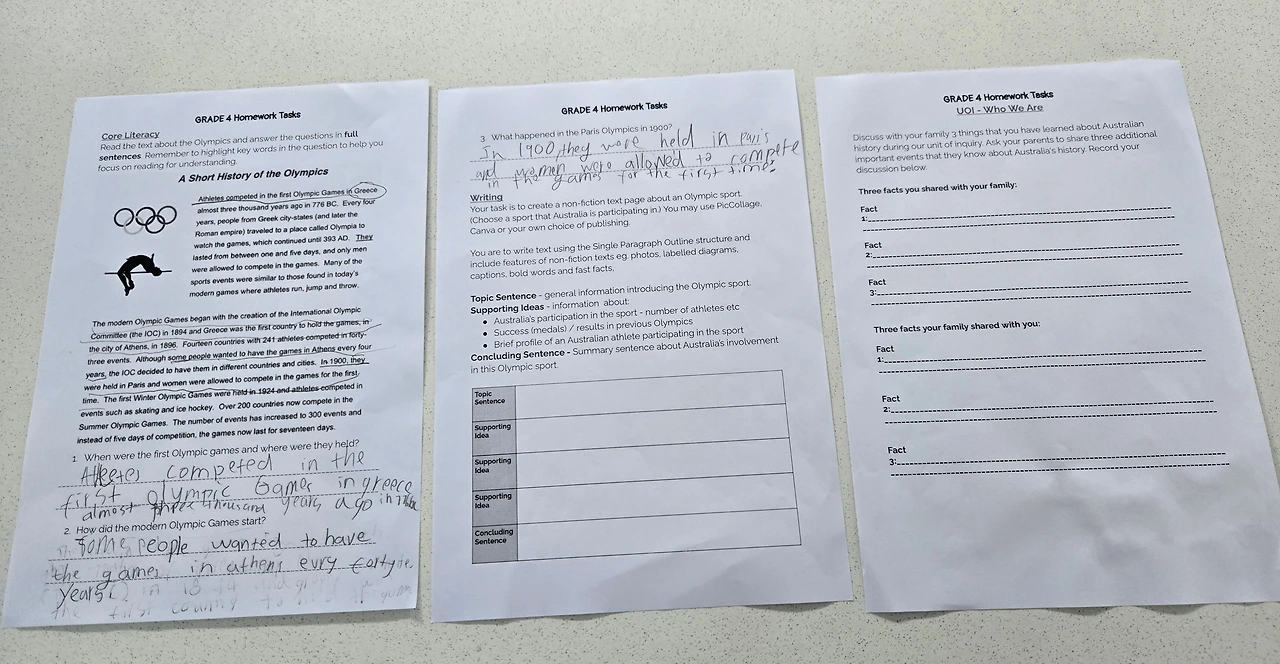 GRADE 4 Homework Tasks
Core Literacy
Read the text about the Olympics and answer the questions in full
sentences. Remember to highlight key words in the question to help you
focus on reading for understanding.
A Short History of the Olympics
Athletes competed in the first Olympic Games in Greece
almost three thousand years ago in 776 BC. Every four
years, people from Greek city-states (and later the
Roman empire) traveled to a place called Olympia to
watch the games, which continued until 393 AD. They
lasted from between one and five days, and only men
were allowed to compete in the games. Many of the
sports events were similar to those found in today's
modern games where athletes run, jump and throw.
The modern Olympic Games began with the creation of the International Olympic
Committee (the IOC) in 1894 and Greece was the first country to hold the games, in
the city of Athens, in 1896. Fourteen countries with 241 athletes competed in forty-
three events. Although some people wanted to have the games in Athens every four
years, the IOC decided to have them in different countries and cities. In 1900, they
were held in Paris and women were allowed to compete in the games for the first
time. The first Winter Olympic Games were held in 1924 and athletes competed in
events such as skating and ice hockey. Over 200 countries now compete in the
Summer Olympic Games. The number of events has increased to 300 events and
instead of five days of competition, the games now last for seventeen days.
1. When were the first Olympic games and where were they held?
Athletes competed in the
first olympic Games in greece
almost three thousand years ago in
2. How did the modern Olympic Games start?
Some people wanted to have
the games in athens evry
years.
the first country to
GRADE 4 Homework Tasks
3. What happened in the Paris Olympics in 1900?
In 1900, they were held in Paris
and women were allowed to compete
in the games for the first time.
Writing
Your task is to create a non-fiction text page about an Olympic sport.
(Choose a sport that Australia is participating in.) You may use PicCollage,
Canva or your own choice of publishing.
You are to write text using the Single Paragraph Outline structure and
include features of non-fiction texts eg. photos, labelled diagrams,
captions, bold words and fast facts,
Topic Sentence - general information introducing the Olympic sport
Supporting Ideas - information about:
• Australia's participation in the sport - number of athletes etc
• Success (medals) / results in previous Olympics
• Brief profile of an Australian athlete participating in the sport
Concluding Sentence - Summary sentence about Australia's involvement
in this Olympic sport.
Topic
Sentence
Supporting
Idea
Supporting
Idea
Supporting
Idea
Concluding
Sentence
GRADE 4 Homework Tasks
UOI - Who We Are
Discuss with your family 3 things that you have learned about Australian
history during our unit of inquiry. Ask your parents to share three additional
important events that they know about Australia's history. Record your
discussion below.
Three facts you shared with your family:
Fact
1:
Fact
2:
Fact
3:
Three facts your family shared with you:
Fact
1:
Fact
2:
Fact
3: